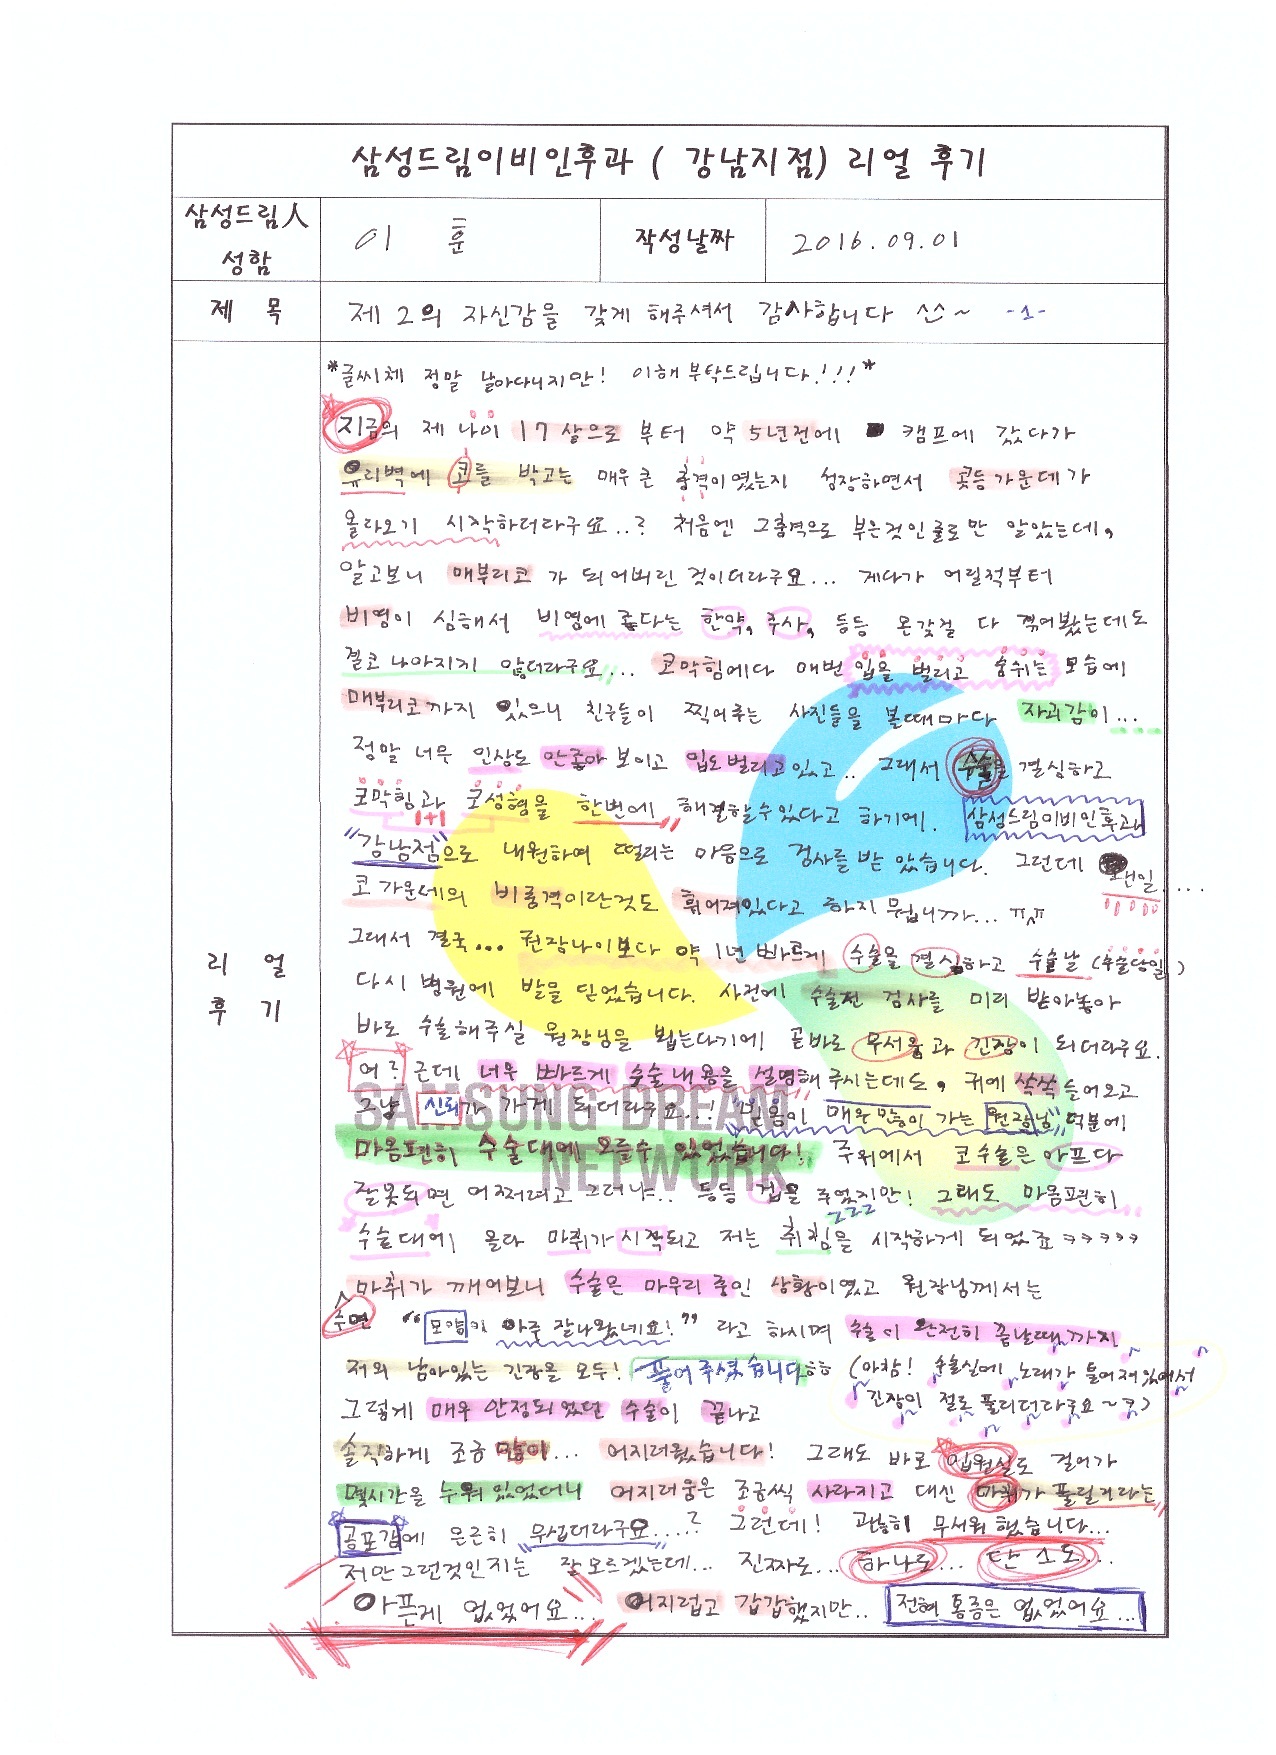 삼성드림이비인후과 ( 강남지점) 리얼 후기
삼성드림人 성함
이 훈
작성날짜
2016.09.01
제 목
제 2의 자신감을 갖게 해주셔서 감사합니다 ^^~ -1-
리 얼
후 기
*글씨체 정말 날아다니지만! 이해 부탁드립니다!!!*
지금의 제 나이 17살으로 부터 약 5년전에 캠프에 갔다가
유리벽에 코를 박고는 매우 큰 충격이였는지 성장하면서 콧등 가운데가
올라오기 시작하더라구요..? 처음엔 그충격으로 부은것인줄로만 알았는데,
알고보니 매부리코 가 되어버린 것이더라구요... 게다가 어릴적부터
비염이 심해서 비염에 좋다는 한약, 주사, 등등 온갖걸 다 겪어봤는데도
결코 나아지지 않더라구요... 코막힘에다 매번 입을 벌리고 숨쉬는 모습에
매부리코까지 있으니 친구들이 찍어주는 사진들을 볼때마다 자괴감이...
정말 너무 인상도 안좋아 보이고 입도 벌리고 있고.. 그래서 수술을 결심하고
코막힘과 코성형을 한번에 해결할수있다고 하기에. 삼성드림이비인후과
1+1
"강남점"으로 내원하여 떨리는 마음으로 검사를 받 았습니다. 그런데 왠일....
코 가운데의 비중격이란것도 휘어져있다고 하지 뭡니까... ㅠㅠ
그래서 결국... 권장나이보다 약 1년 빠르게 수술을 결심하고 수술날 (수술당일)
다시 병원에 발을 딛었습니다. 사전에 수술전 검사를 미리 받아놓아
바로 수술해주실 원장님을 뵙는다기에! 곧바로 무서움과 긴장이 되더라구요.
어? 근데 너무 빠르게 수술내용을 설명해 주시는데도, 귀에 쏙쏙 들어오고
그냥 신뢰가 가게 되더라구요...! "믿음이 매우 많이 가는 원장님" 덕분에
SAMSUNG DREAM
마음편히 수술대에 오를수 있었습니다! 주위에서 코수술은 아프다
NETWORK
잘못되면 어쩌려고 그러냐.. 등등 겁을 주었지만! 그래도 마음편히
수술대에 올라 마취가 시작되고 저는 취침을 시작하게 되었죠 ㅋㅋㅋㅋㅋ
zzz
마취가 깨어보니 수술은 마무리 중인 상황이였고 원장님께서는
수면 "모양이 아주 잘나왔네요!" 라고 하시며 수술이 완전히 끝날때까지
저의 남아있는 긴장을 모두! 풀어주셨습니다ㅎㅎ (아참! 수술실에 노래가 틀어져있어서
그렇게 매우 안정되었던 수술이 끝나고 긴장이 절로 풀리더라구요~ㅋ)
솔직하게 조금 많이... 어지러웠습니다! 그래도 바로 입원실로 걸어가
몇시간을 누워 있었더니 어지러움은 조금씩 사라지고 대신 마취가 풀릴거라는
공포감에 은근히 무섭더라구요....? 그런데! 괜히 무서워 했습니다...
저만그런것인지는 잘모르겠는데... 진짜로... 하나도... 단 1도...
아픈게 없었어요... 어지럽고 갑갑했지만.. 전혀 통증은 없었어요...